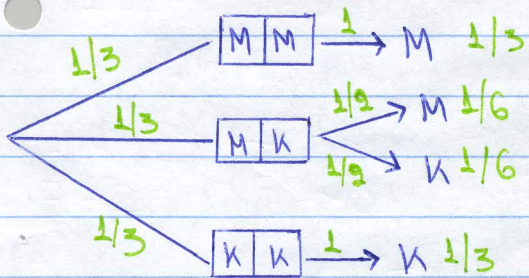 1/3 M M 1 M 1/3
1/3 M K 1/2 M 1/6
1/2 K 1/6
1/3 K K 1 K 1/3